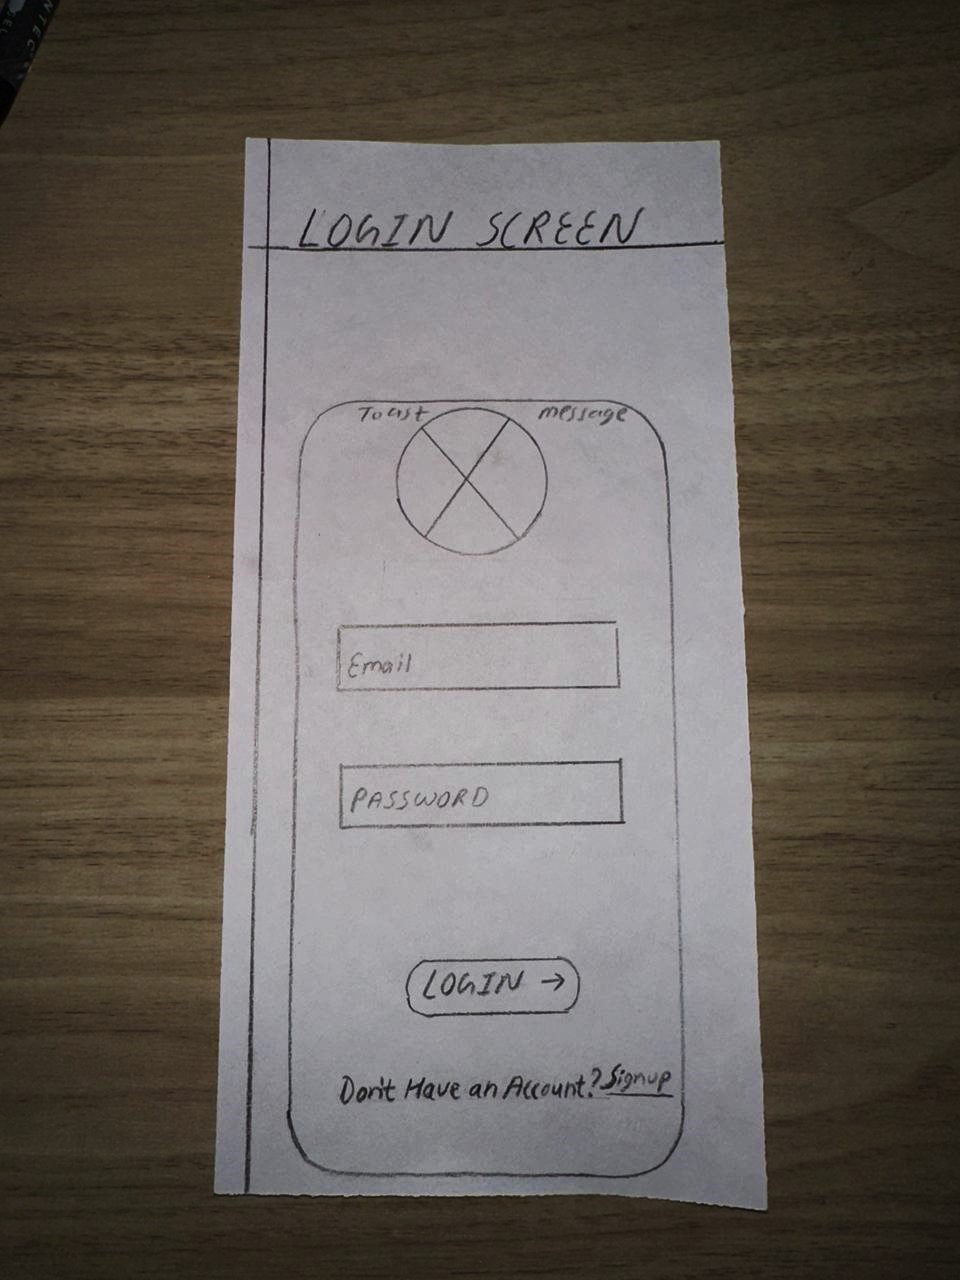 LOGIN SCREEN
Toast message
Email
PASSWORD
LOGIN →
Don't Have an Account? Signup